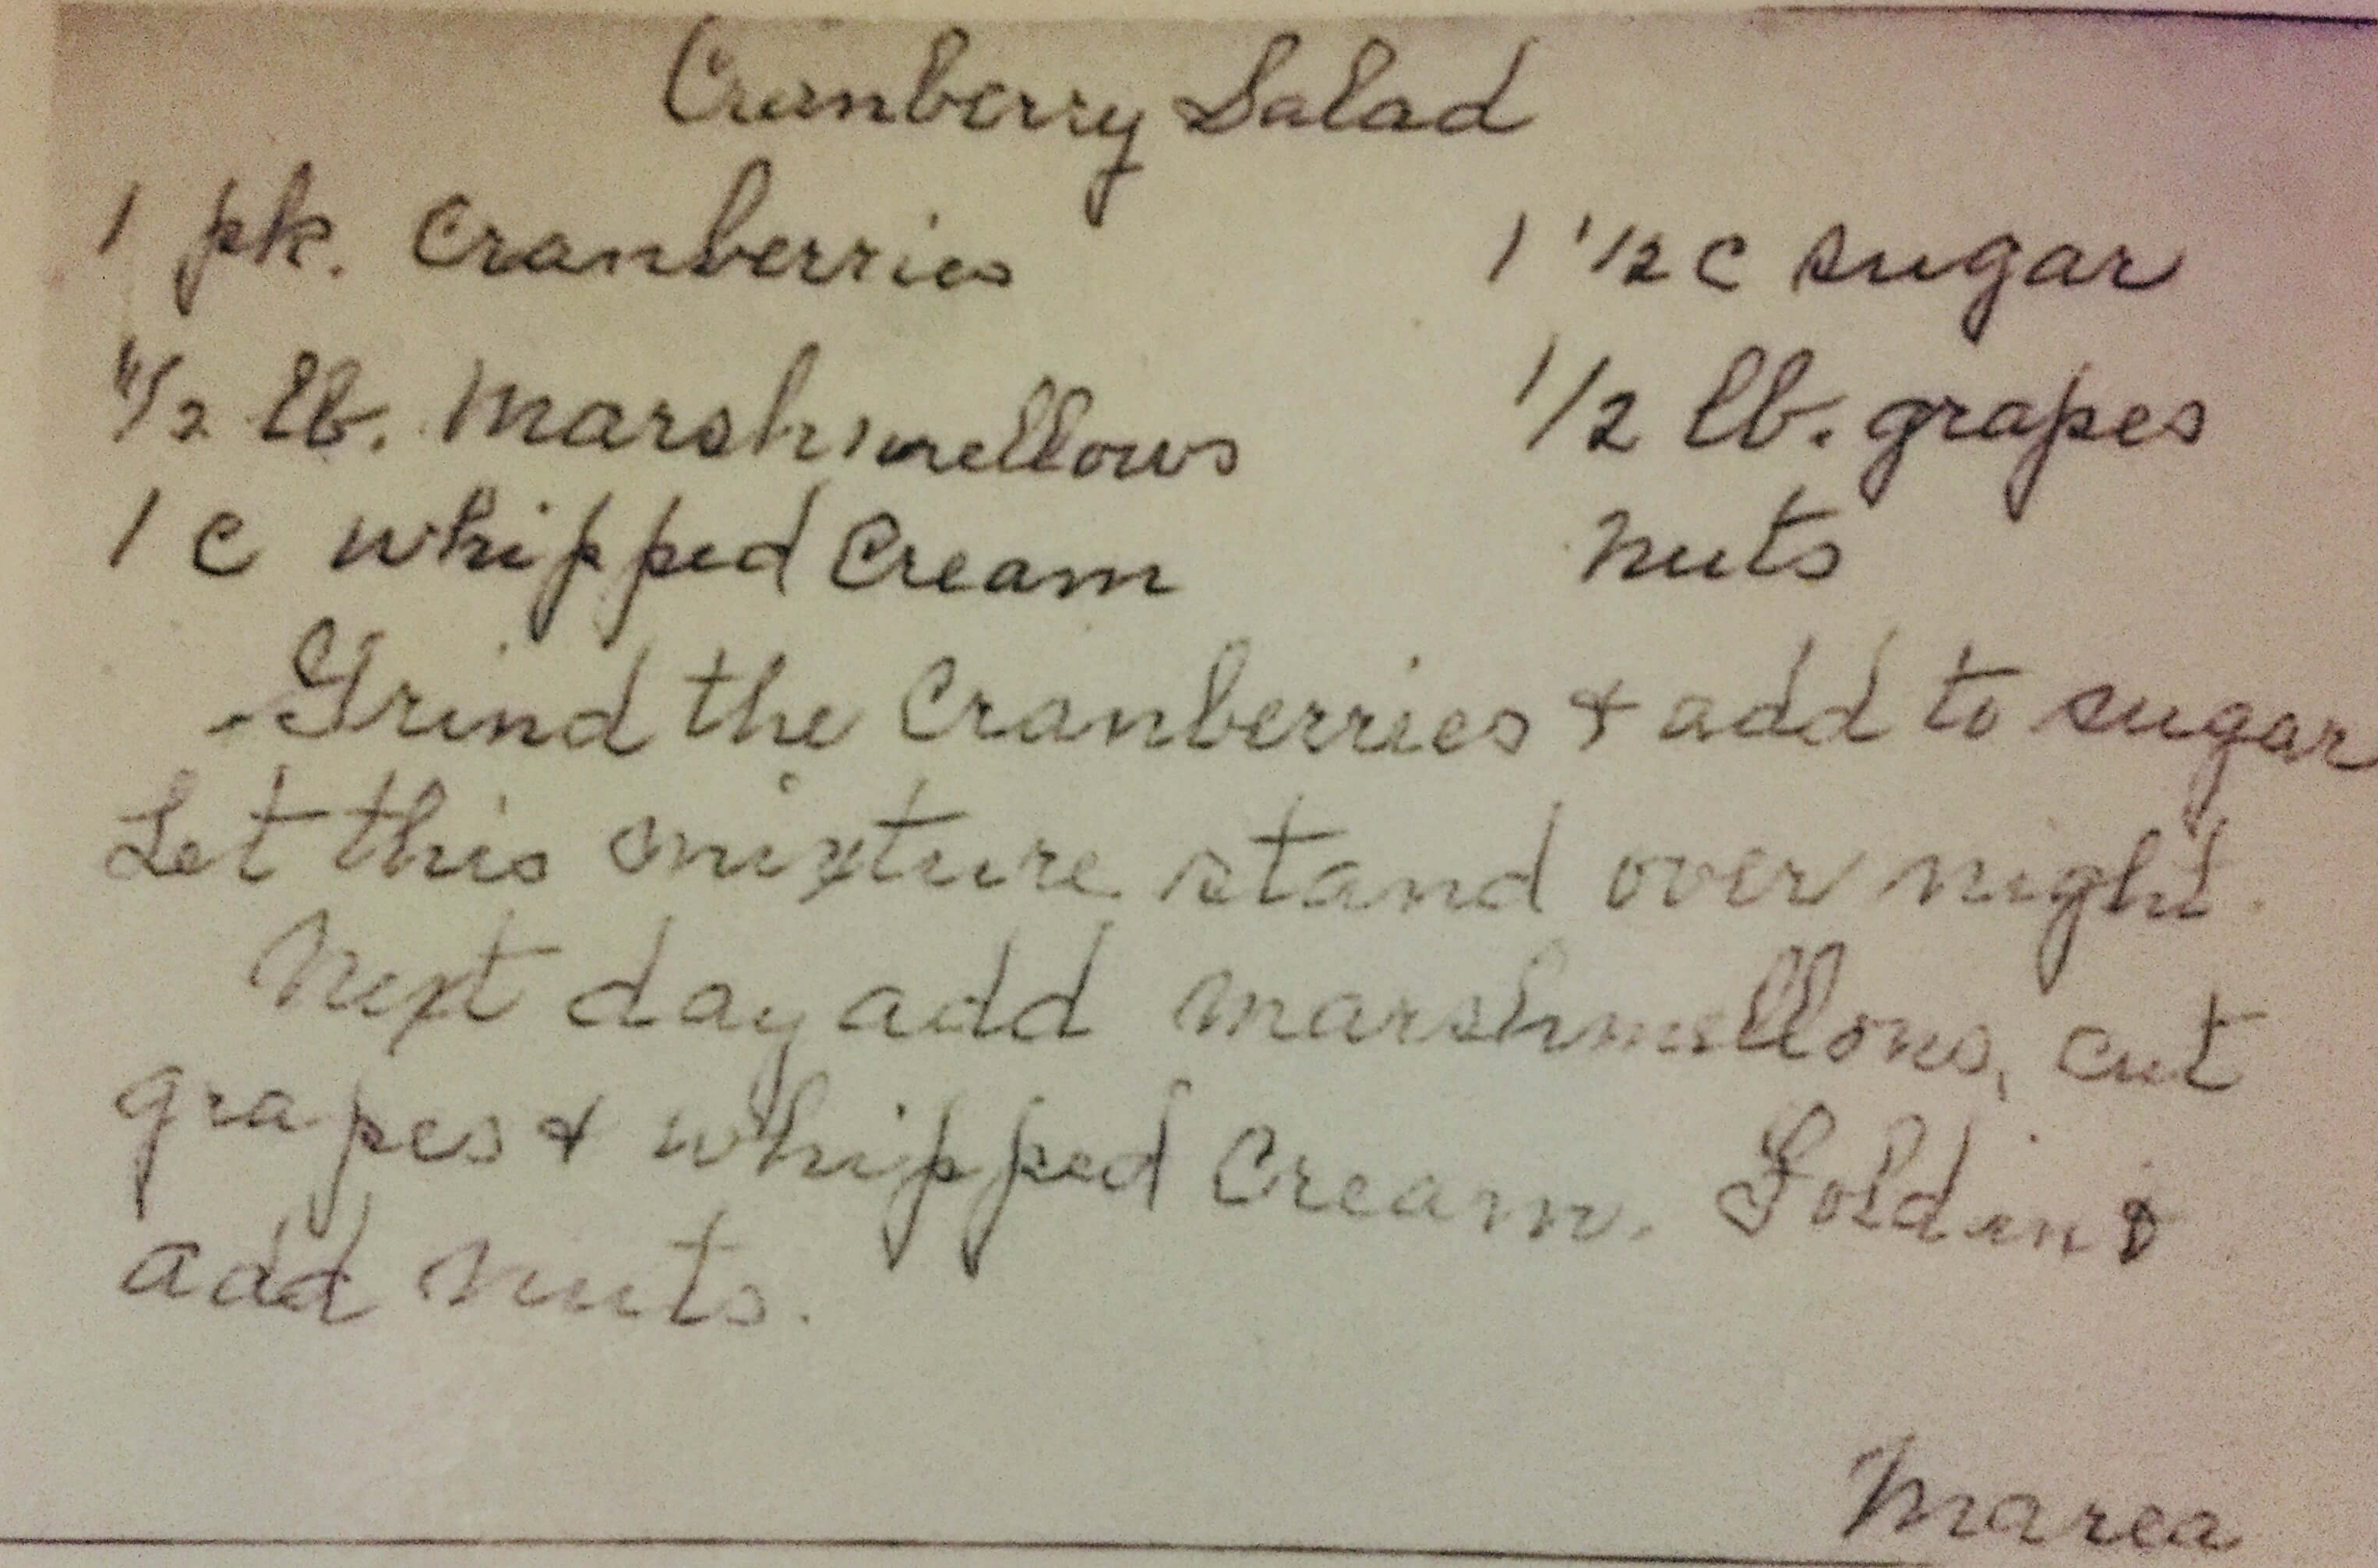 Cranberry Salad
1 pk. Cranberries 1 1/2 c sugar
1/2 lb. Marshmellows 1/2 lb. grapes
1 c whipped Cream nuts
Grind the Cranberries & add to sugar
Let this mixture stand over night.
Next day add marshmellows, cut
grapes & whipped Cream. Fold in &
add nuts.
Marea